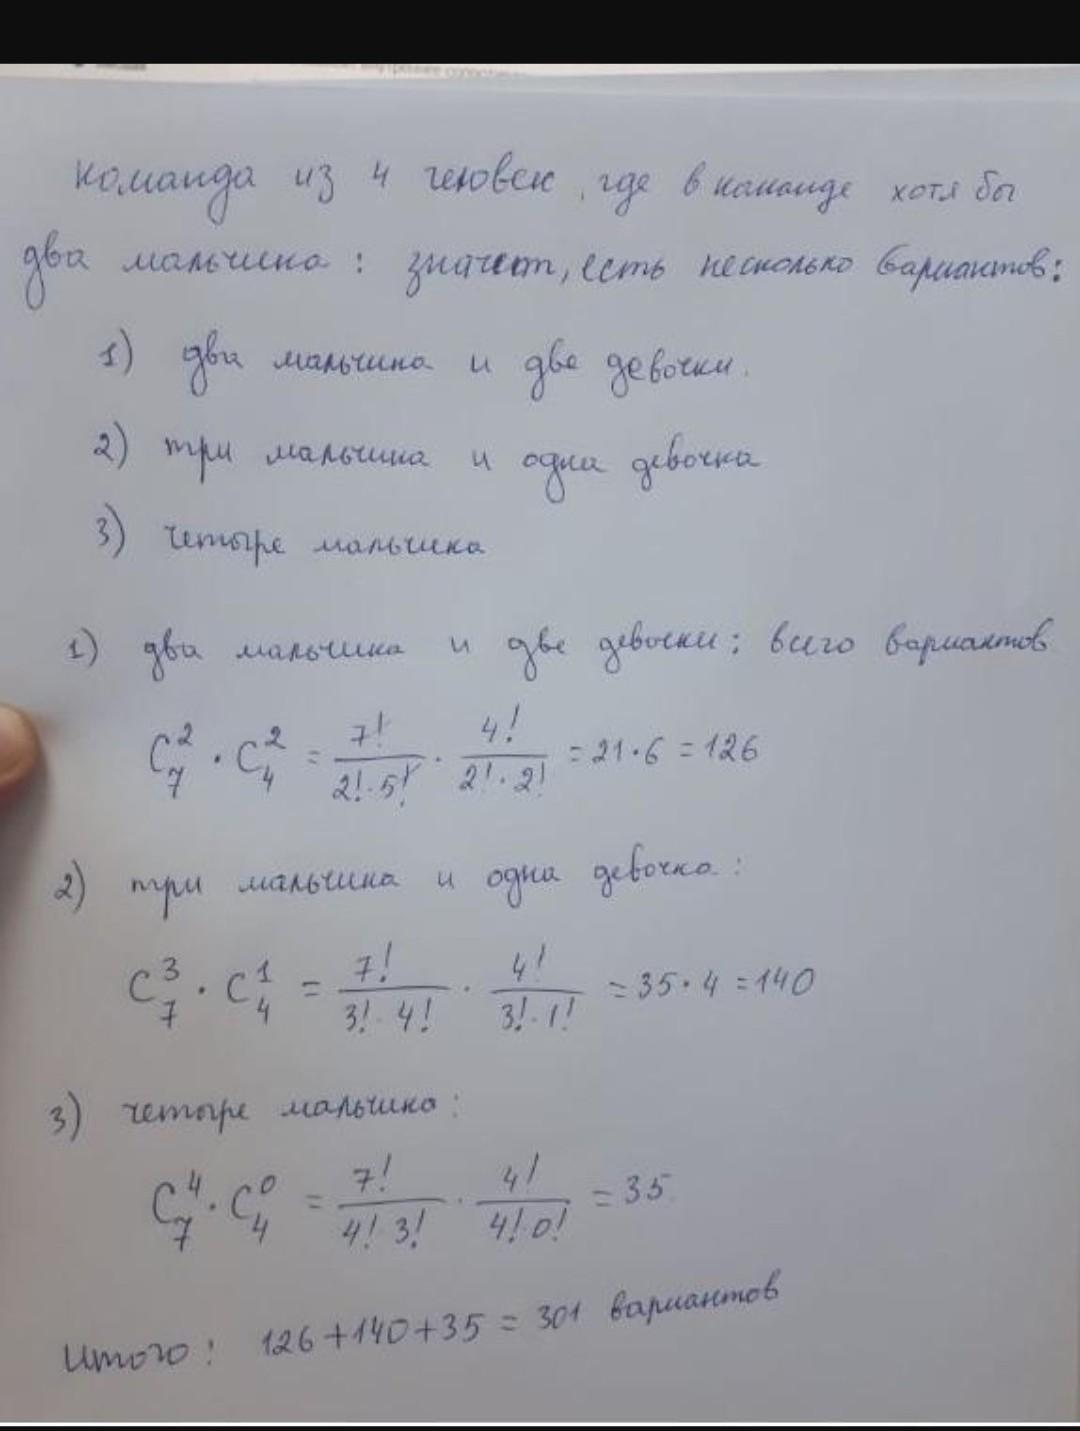 Команда из 4 человек, где в команде хотя бы
два мальчика: значит, есть несколько вариантов:
1) два мальчика и две девочки.
2) три мальчика и одна девочка
3) четыре мальчика
1) два мальчика и две девочки; всего вариантов
C_7^2 · C_4^2 = 7!/(2!·5!) · 4!/(2!·2!) = 21·6 = 126
2) три мальчика и одна девочка:
C_7^3 · C_4^1 = 7!/(3!·4!) · 4!/(3!·1!) = 35·4 = 140
3) четыре мальчика:
C_7^4 · C_4^0 = 7!/(4!·3!) · 4!/(4!·0!) = 35
Итого: 126+140+35 = 301 вариантов